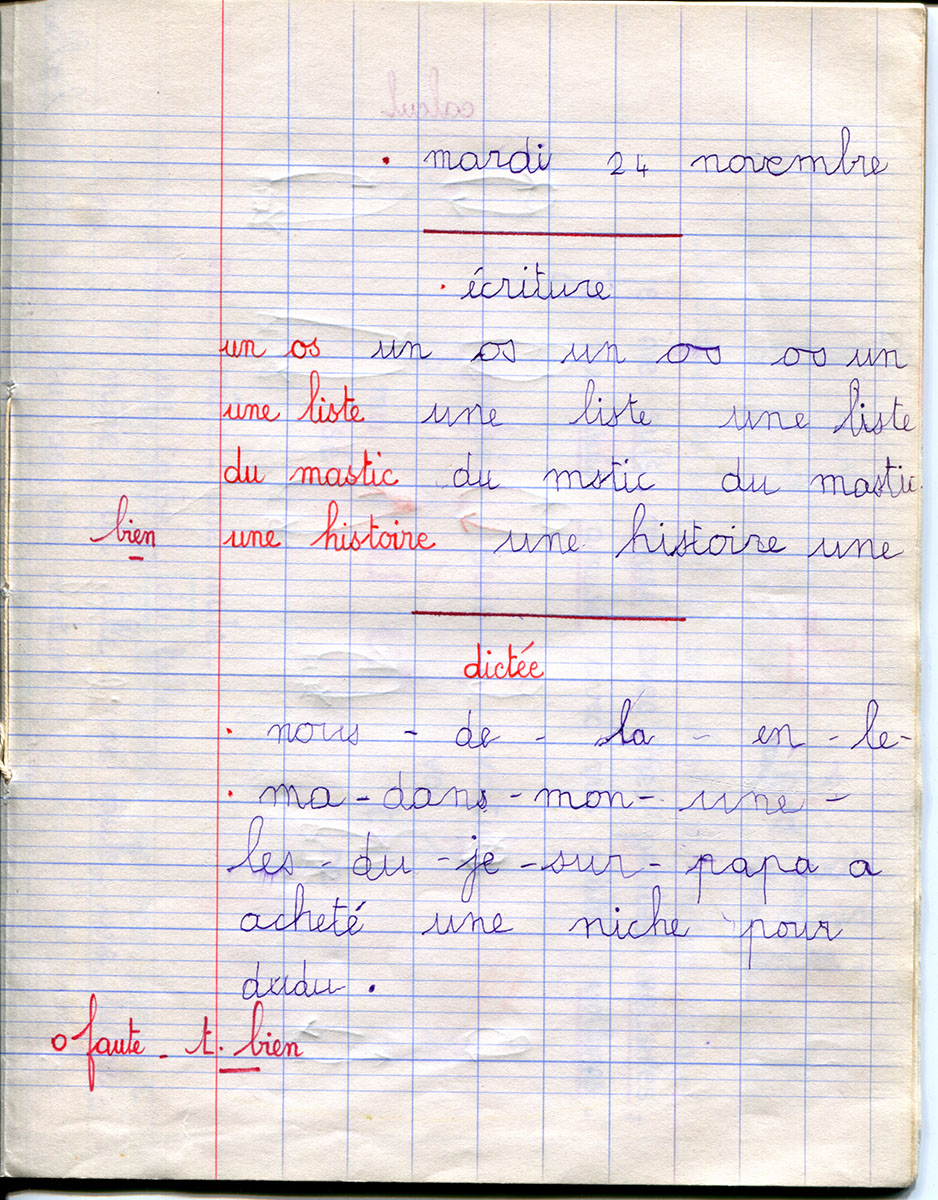 calcul
. mardi 24 novembre
. écriture
un os un os un os os un
une liste une liste une liste
du mastic du mstic du mastic
bien une histoire une histoire une
dictée
. nous - de - la - en - le -
. ma - dans - mon - une -
les - du - je - sur - papa a
acheté une niche pour
dudu .
0 faute - t. bien